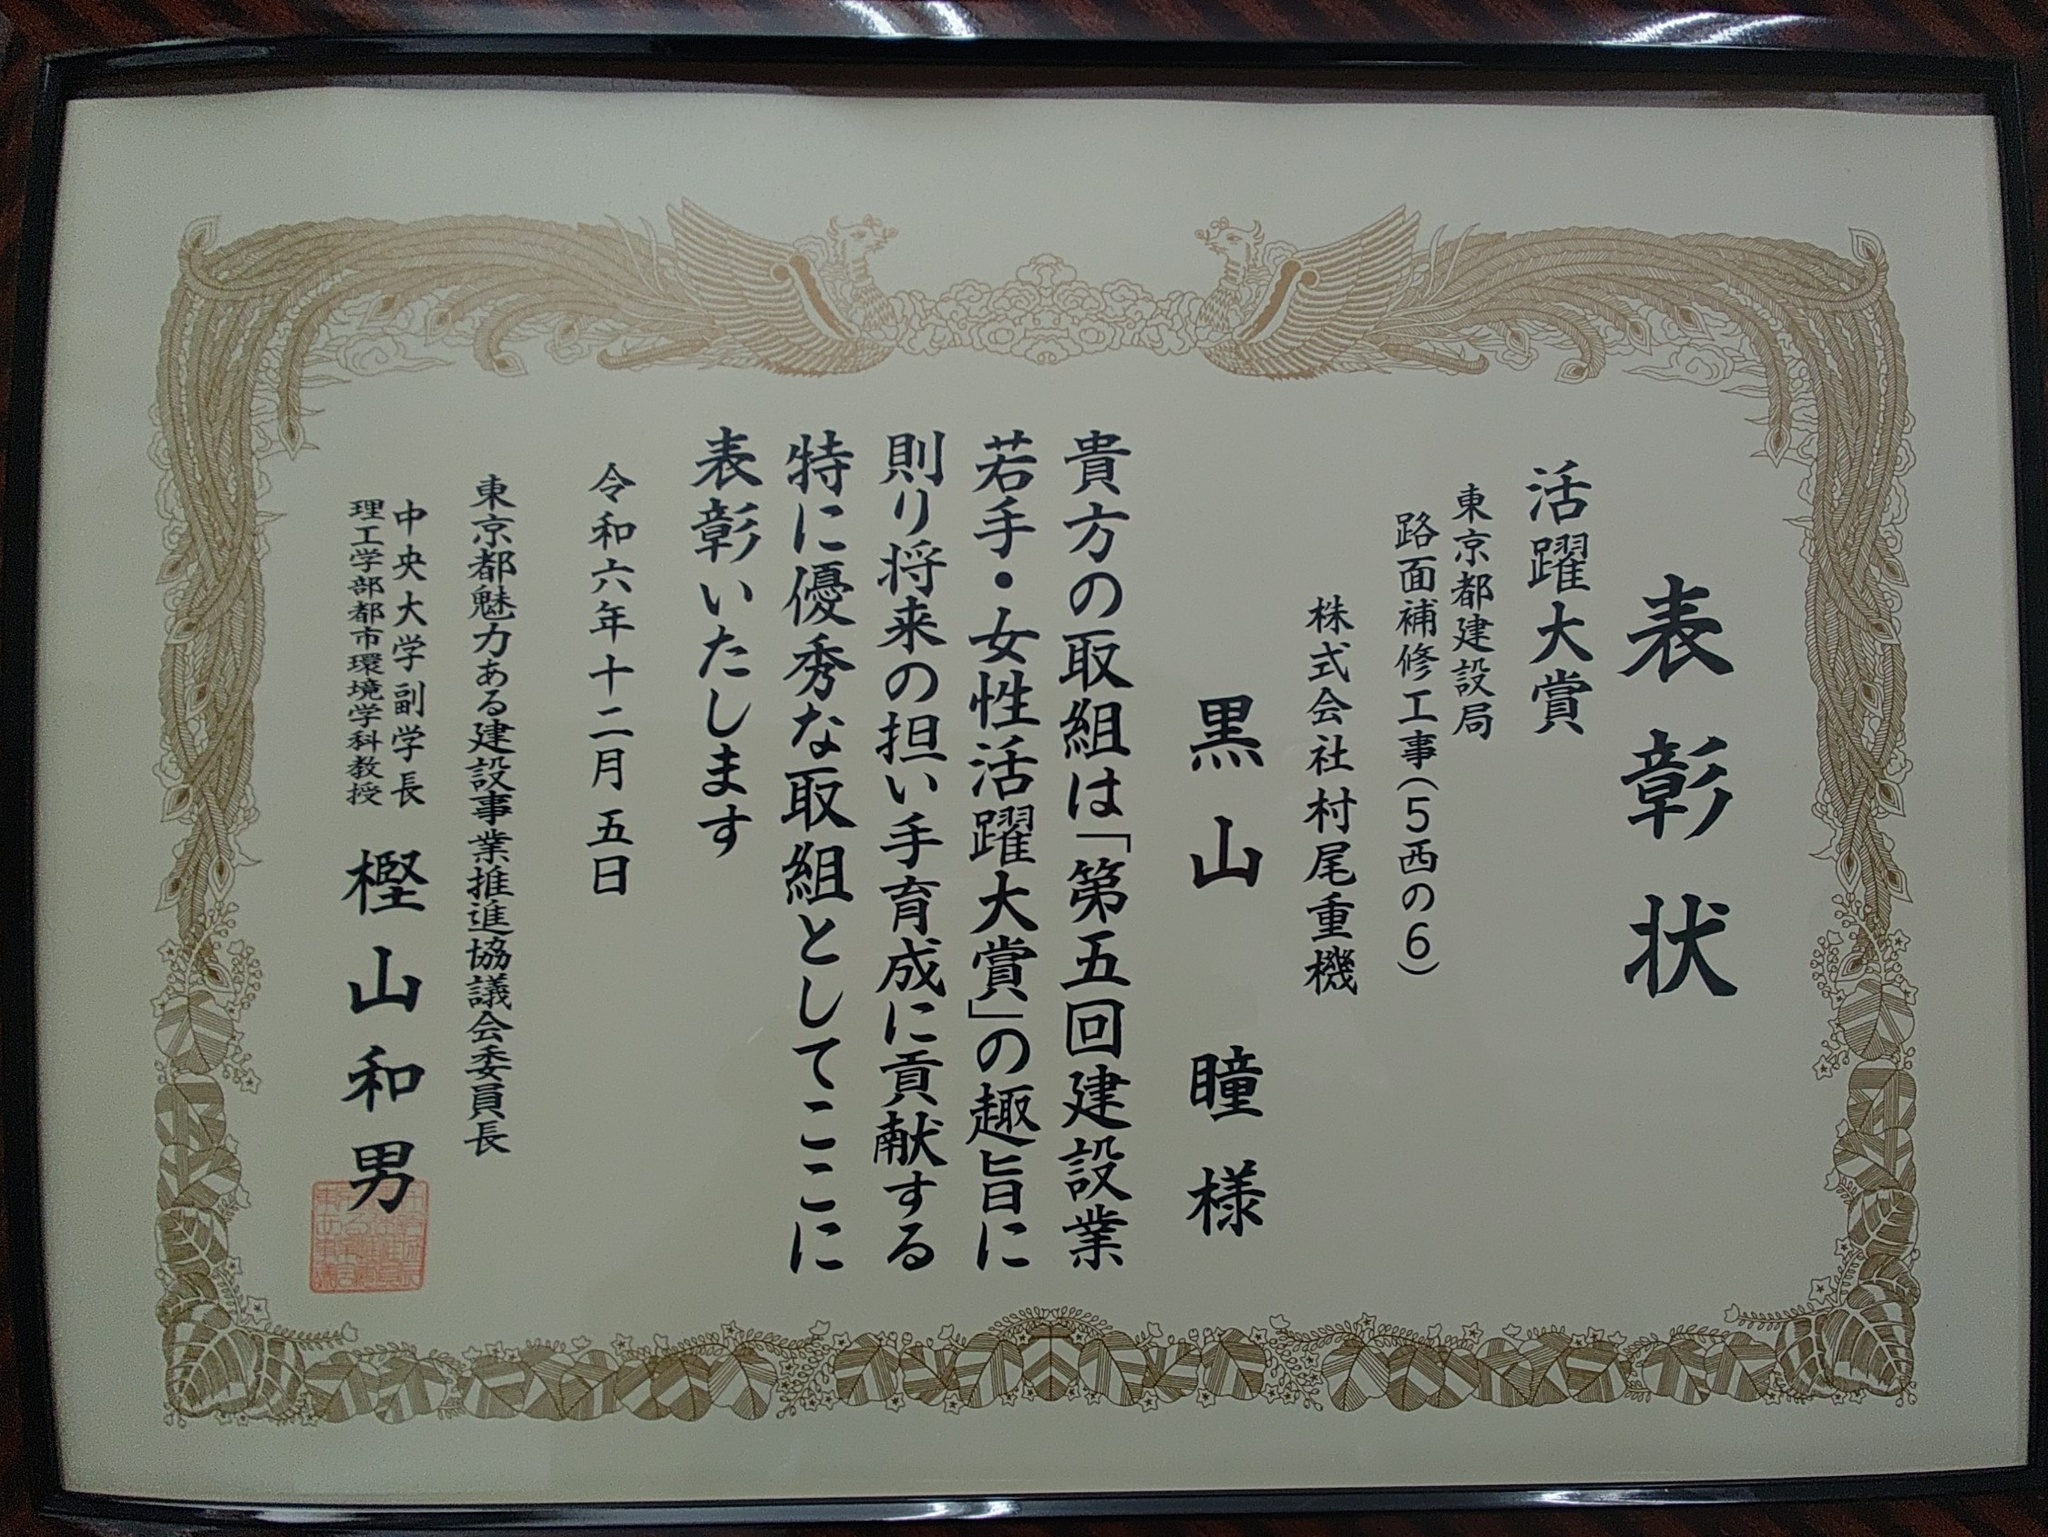 表彰状
活躍大賞
東京都建設局
路面補修工事(5西の6)
株式会社村尾重機
黒山 瞳 様
貴方の取組は「第五回建設業
若手・女性活躍大賞」の趣旨に
則り将来の担い手育成に貢献する
特に優秀な取組としてここに
表彰いたします
令和六年十二月五日
東京都魅力ある建設事業推進協議会委員長
中央大学副学長
理工学部都市環境学科教授
樫山和男